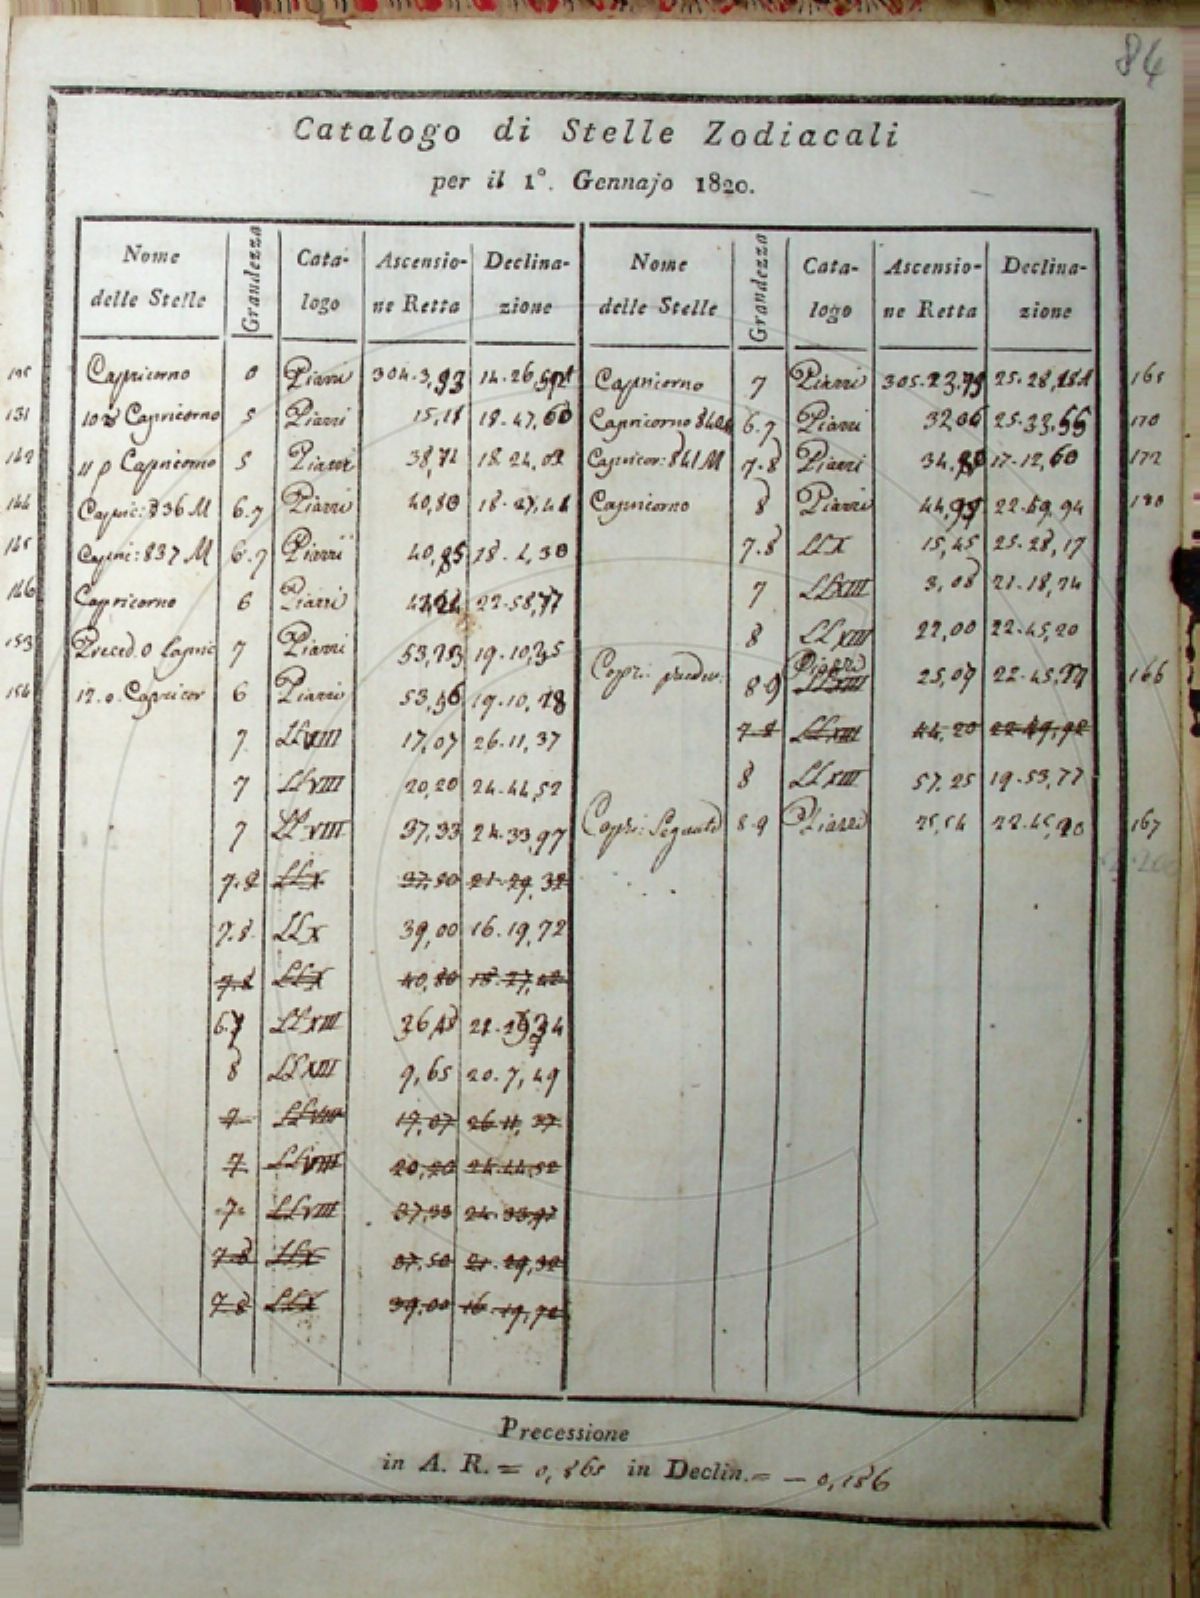 84
Catalogo di Stelle Zodiacali
per il 1°. Gennajo 1820.
Nome delle Stelle Grandezza Cata-logo Ascensio-ne Retta Declina-zione
Nome delle Stelle Grandezza Cata-logo Ascensio-ne Retta Declina-zione
Capricorno Piazzi 304.3,93 14.26
131 Capricorno 5 Piazzi 18.47,60
11 ρ Capricorno 5 Piazzi
144 Capric: 836 M 6.7 Piazzi 40,80
145 Capric: 837 M 6.7 Piazzi 40,85
146 Capricorno 6 Piazzi 22.58,77
153 Preced. o Capric 7 Piazzi 19.10,35
154 12. o. Capricor 6 Piazzi 53,56 19.10,18
7 LLVIII 17,07 26.11,37
7 LLVIII 20,20 24.44,52
7 LLVIII 37,33 24.33,97
7.8 LLX 37,50 21.29,32
7.8. LLX 39,00 16.19,72
7.8 LLX 40,80 18.27,42
6.7 LLXIII
8 LLXIII 9,65 20.7,49
7 LLVIII 17,07 26.11,37
7 LLVIII 20,20 24.44,52
7 LLVIII 37,33 24.33,97
7.8 LLX 37,50 21.29,32
7.8 LLX 39,00 16.19,72
Capricorno 7 Piazzi 25.28
Capricorno 6.7 Piazzi 32,06 25.33,55 170
Capricor: 841 M 7.8 Piazzi 17.12,60 172
Capricorno 8 Piazzi 44,99 22.49,94 180
7.8 LLX 15,45 25.28,17
7 LLXIII 3,08 21.18,74
8 LLXIII 22,00 22.45,20
Capri: preced. 8.9 Piazzi LLXIII 25,09 166
7.8 LLXIII 44,20 22.49,98
8 LLXIII 57,25 19.53,77
Capri: Seguente 8.9 Piazzi 25,54 22.45,20 167
Precessione
in A. R. = 0,865 in Declin. = - 0,186